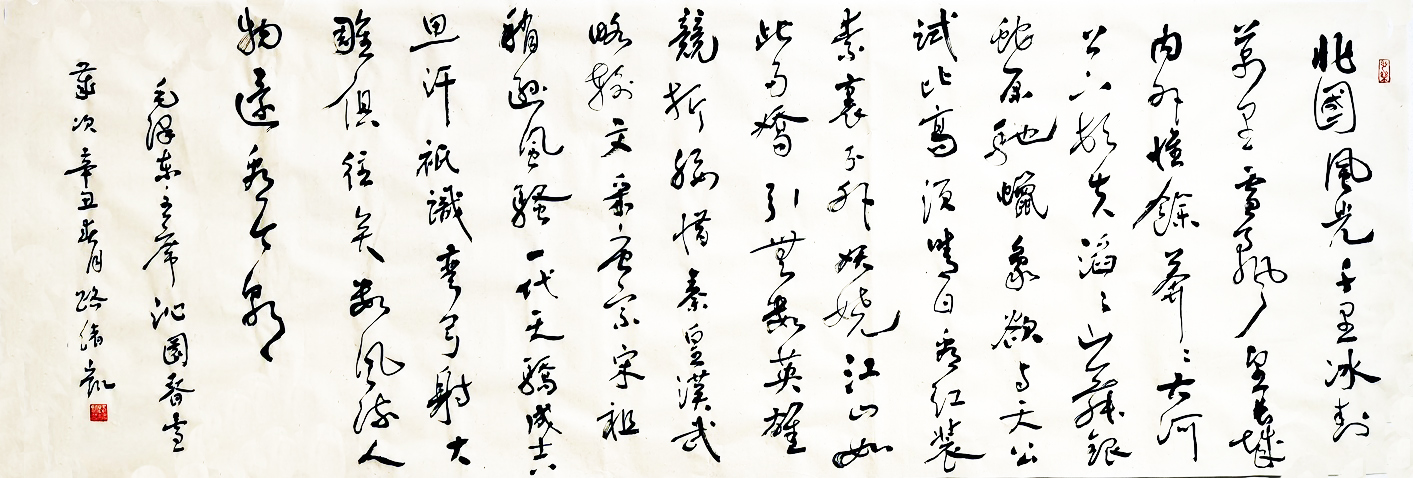 北國風光千里冰封
萬里雪飄望長城
内外惟餘莽々大河
上下頓失滔々山舞銀
蛇原馳蠟象欲与天公
試比高須晴日看紅裝
素裹分外妖嬈江山如
此多嬌引無數英雄
競折腰惜秦皇漢武
略輸文采唐宗宋祖
稍遜風騷一代天驕成吉
思汗祇識彎弓射大
雕俱往矣數風流人
物還看今朝
毛澤東主席沁園春雪
歲次辛丑春月路緒凱